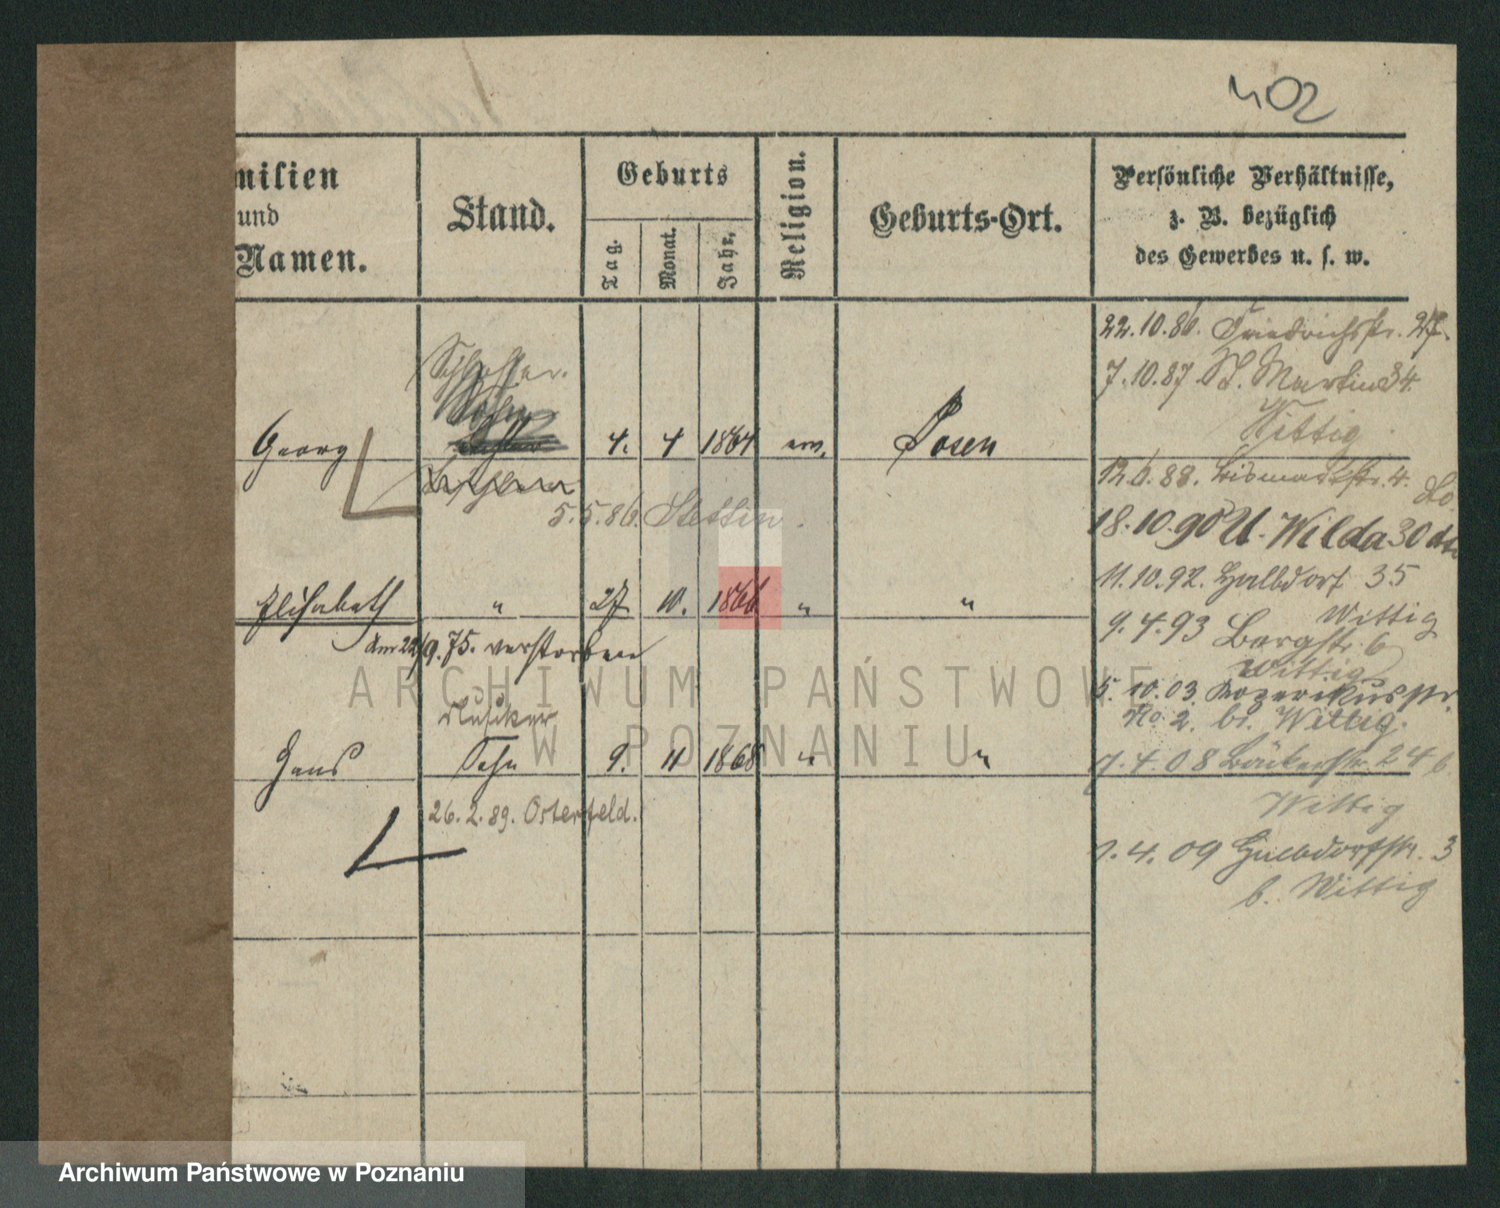 402
milien
und
Namen.
Stand.
Geburts
Tag.
Monat.
Jahr.
Religion.
Geburts-Ort.
Persönliche Verhältnisse,
z. B. bezüglich
des Gewerbes u. s. w.
22.10.86. Friedrichstr. 27.
7.10.87. St. Martin 34.
Wittig
Schlosser.
Georg
4. 4 1864 ev. Posen
5.5.86. Stettin.
12.6.88. Bismarckstr. 4.
18.10.90 U. Wilda 30
11.10.92. Halbdorf 35
Wittig
Elisabeth " 27 10. 1866 " "
am 22/9. 75. verstorben
9.4.93 Bergstr. 6
Wittig
5.10.03
No 2. bi. Wittig.
Musiker
Hans Sohn 9. 11 1868 " "
1.4.08 Bäckerstr. 24 b
Wittig
26.2.89. Osterfeld.
1.4.09 Halbdorfstr. 3
b. Wittig
ARCHIWUM PAŃSTWOWE
W POZNANIU
Archiwum Państwowe w Poznaniu